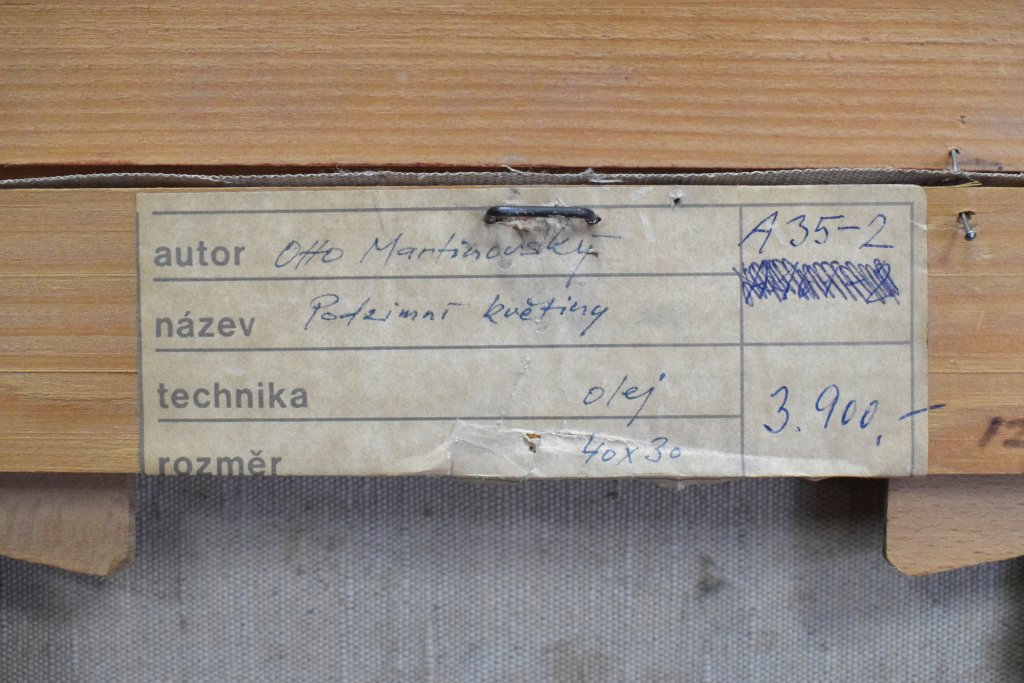 autor Otto Martinovský A35-2
název Podzimní květiny
technika olej 3.900,-
rozměr 40x30